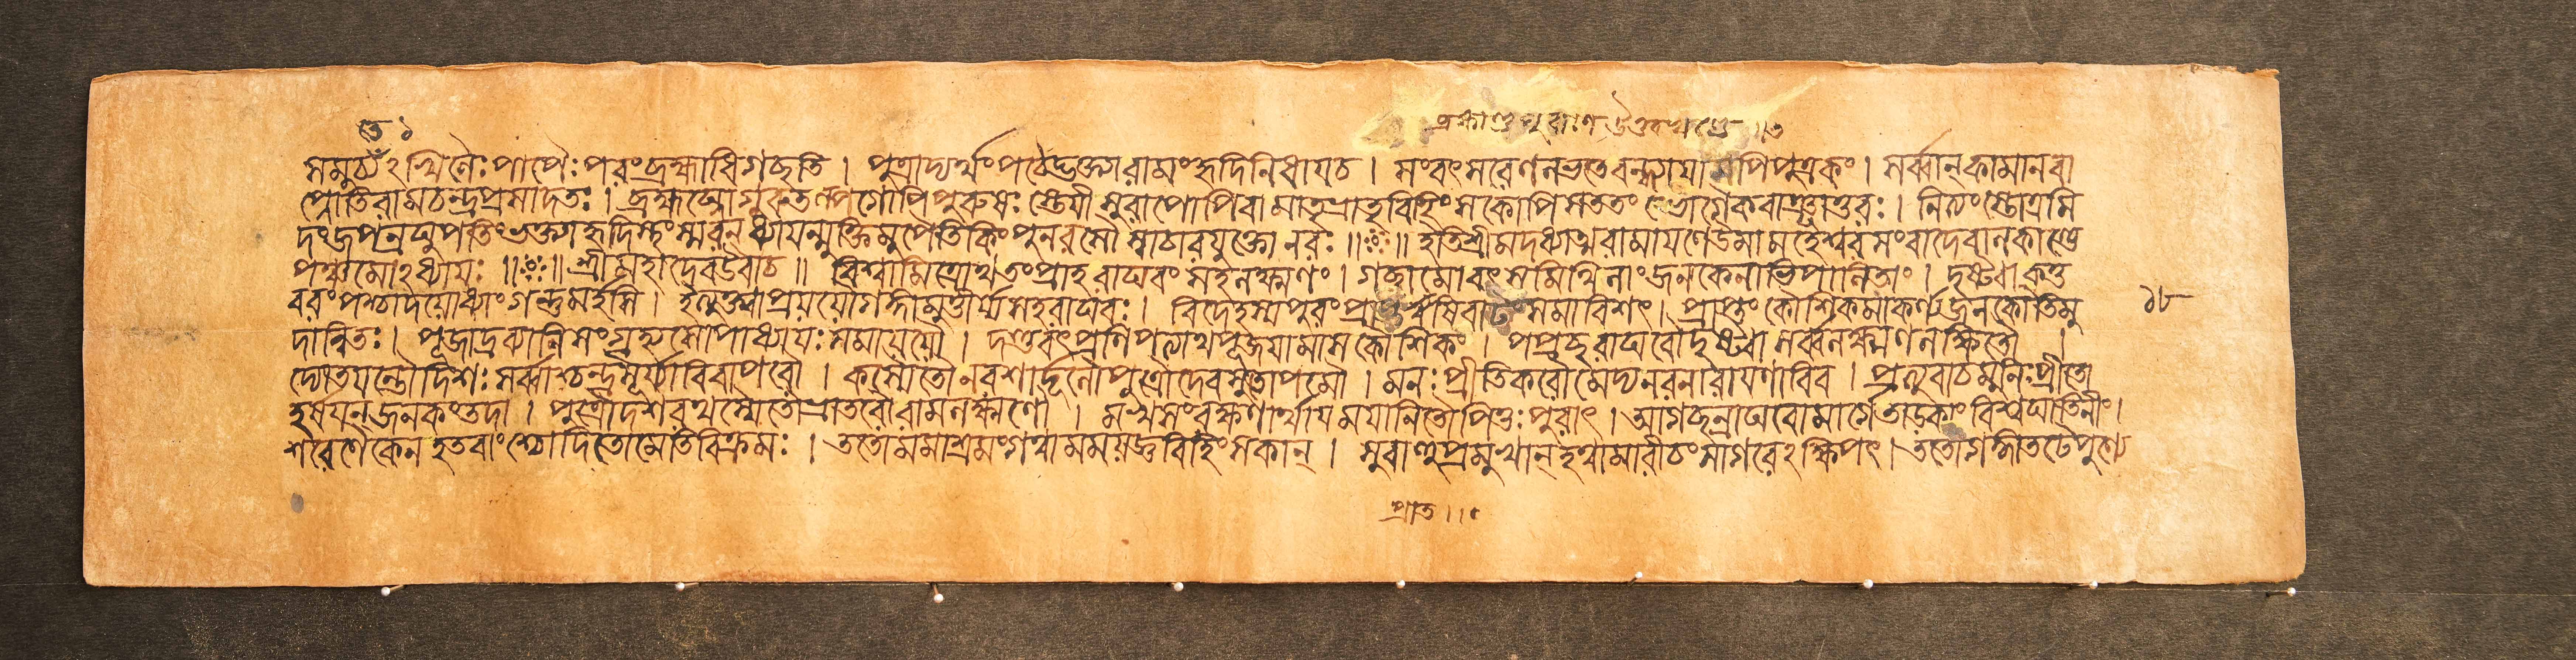 তে ১
ব্রহ্মাণ্ডপুরাণে উত্তরখণ্ডে
সমুচ্যঽখিলৈঃ পাপৈঃ পরং ব্রহ্মাধিগচ্ছতি । পুত্রাদ্যর্থং পঠেদ্ভক্ত্যা রামং হৃদি নিধায় চ । সংবৎসরেণ লভতে বন্ধ্যায়ামপি পুত্রকং । সর্ব্বান্ কামানবা
প্নোতি রামচন্দ্রপ্রসাদতঃ । ব্রহ্মঘ্নো গুরুতল্পগোপি পুরুষঃ স্তেয়ী সুরাপোপি বা মাতৃভ্রাতৃবিহিংসকোপি সততং ভোগৈকবাঞ্ছাতুরঃ । নিত্যং স্তোত্রমি
দং জপন্রঘুপতিং ভক্ত্যা হৃদিস্থং স্মরন্ ধ্যায়ন্মুক্তিমুপৈতি কিং পুনরসৌ স্বাচারযুক্তো নরঃ ॥ ॥ ইতি শ্রীমদধ্যাত্মরামায়ণে উমামহেশ্বরসংবাদে বালকাণ্ডে
পঞ্চমোঽধ্যায়ঃ ॥ ॥ শ্রীমহাদেব উবাচ ॥ বিশ্বামিত্রোথ তং প্রাহ রাঘবং সহলক্ষ্মণং । গচ্ছামো বৎস মিথিলাং জনকেনাভিপালিতাং । দৃষ্ট্বা ক্রতু
বরং পশ্চাদয়োধ্যাং গন্তুমর্হসি । ইত্যুক্ত্বা প্রয়যৌ গঙ্গামুত্তীর্য্য সহরাঘবঃ । বিদেহস্য পুরং প্রাপ্ত ঋষিবাটং সমাবিশৎ । প্রাপ্তং কৌশিকমাকর্ণ্য জনকোতিমু
দান্বিতঃ । পূজাদ্রব্যানি সংগৃহ্য সোপাধ্যায়ঃ সমায়যৌ । দণ্ডবৎ প্রণিপত্যাথ পূজয়ামাস কৌশিকং । পপ্রচ্ছ রাঘবৌ দৃষ্ট্বা সর্ব্বলক্ষ্মণলক্ষিতৌ ।
দ্যোতয়ন্তৌ দিশঃ সর্ব্বাশ্চন্দ্রসূর্য্যাবিবাপরৌ । কস্যৈতৌ নরশার্দূলৌ পুত্রৌ দেবসুতোপমৌ । মনঃপ্রীতিকরৌ মেদ্য নরনারায়ণাবিব । প্রত্যুবাচ মুনিঃ প্রীতো
হর্ষয়ন্ জনকং তদা । পুত্রৌ দশরথস্যৈতৌ ভ্রাতরৌ রামলক্ষ্মণৌ । মখসংরক্ষণার্থায় ময়ানিতৌ পিতুঃ পুরাৎ । আগচ্ছন্রাঘবো মার্গে তাড়কাং বিশ্বঘাতিনীং ।
শরেণৈকেন হতবাংশ্চোদিতো মেতিবিক্রমঃ । ততো মমাশ্রমং গত্বা মম যজ্ঞবিহিংসকান্ । সুবাহুপ্রমুখান্ হত্বা মারীচং সাগরেঽক্ষিপৎ । ততো গঙ্গাতটে পুণ্যে
১৮